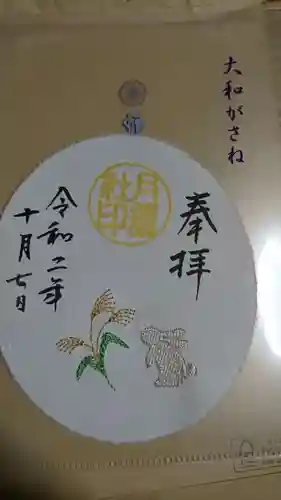 大和がさね
奉拝
月讀
社印
令和二年
十月七日